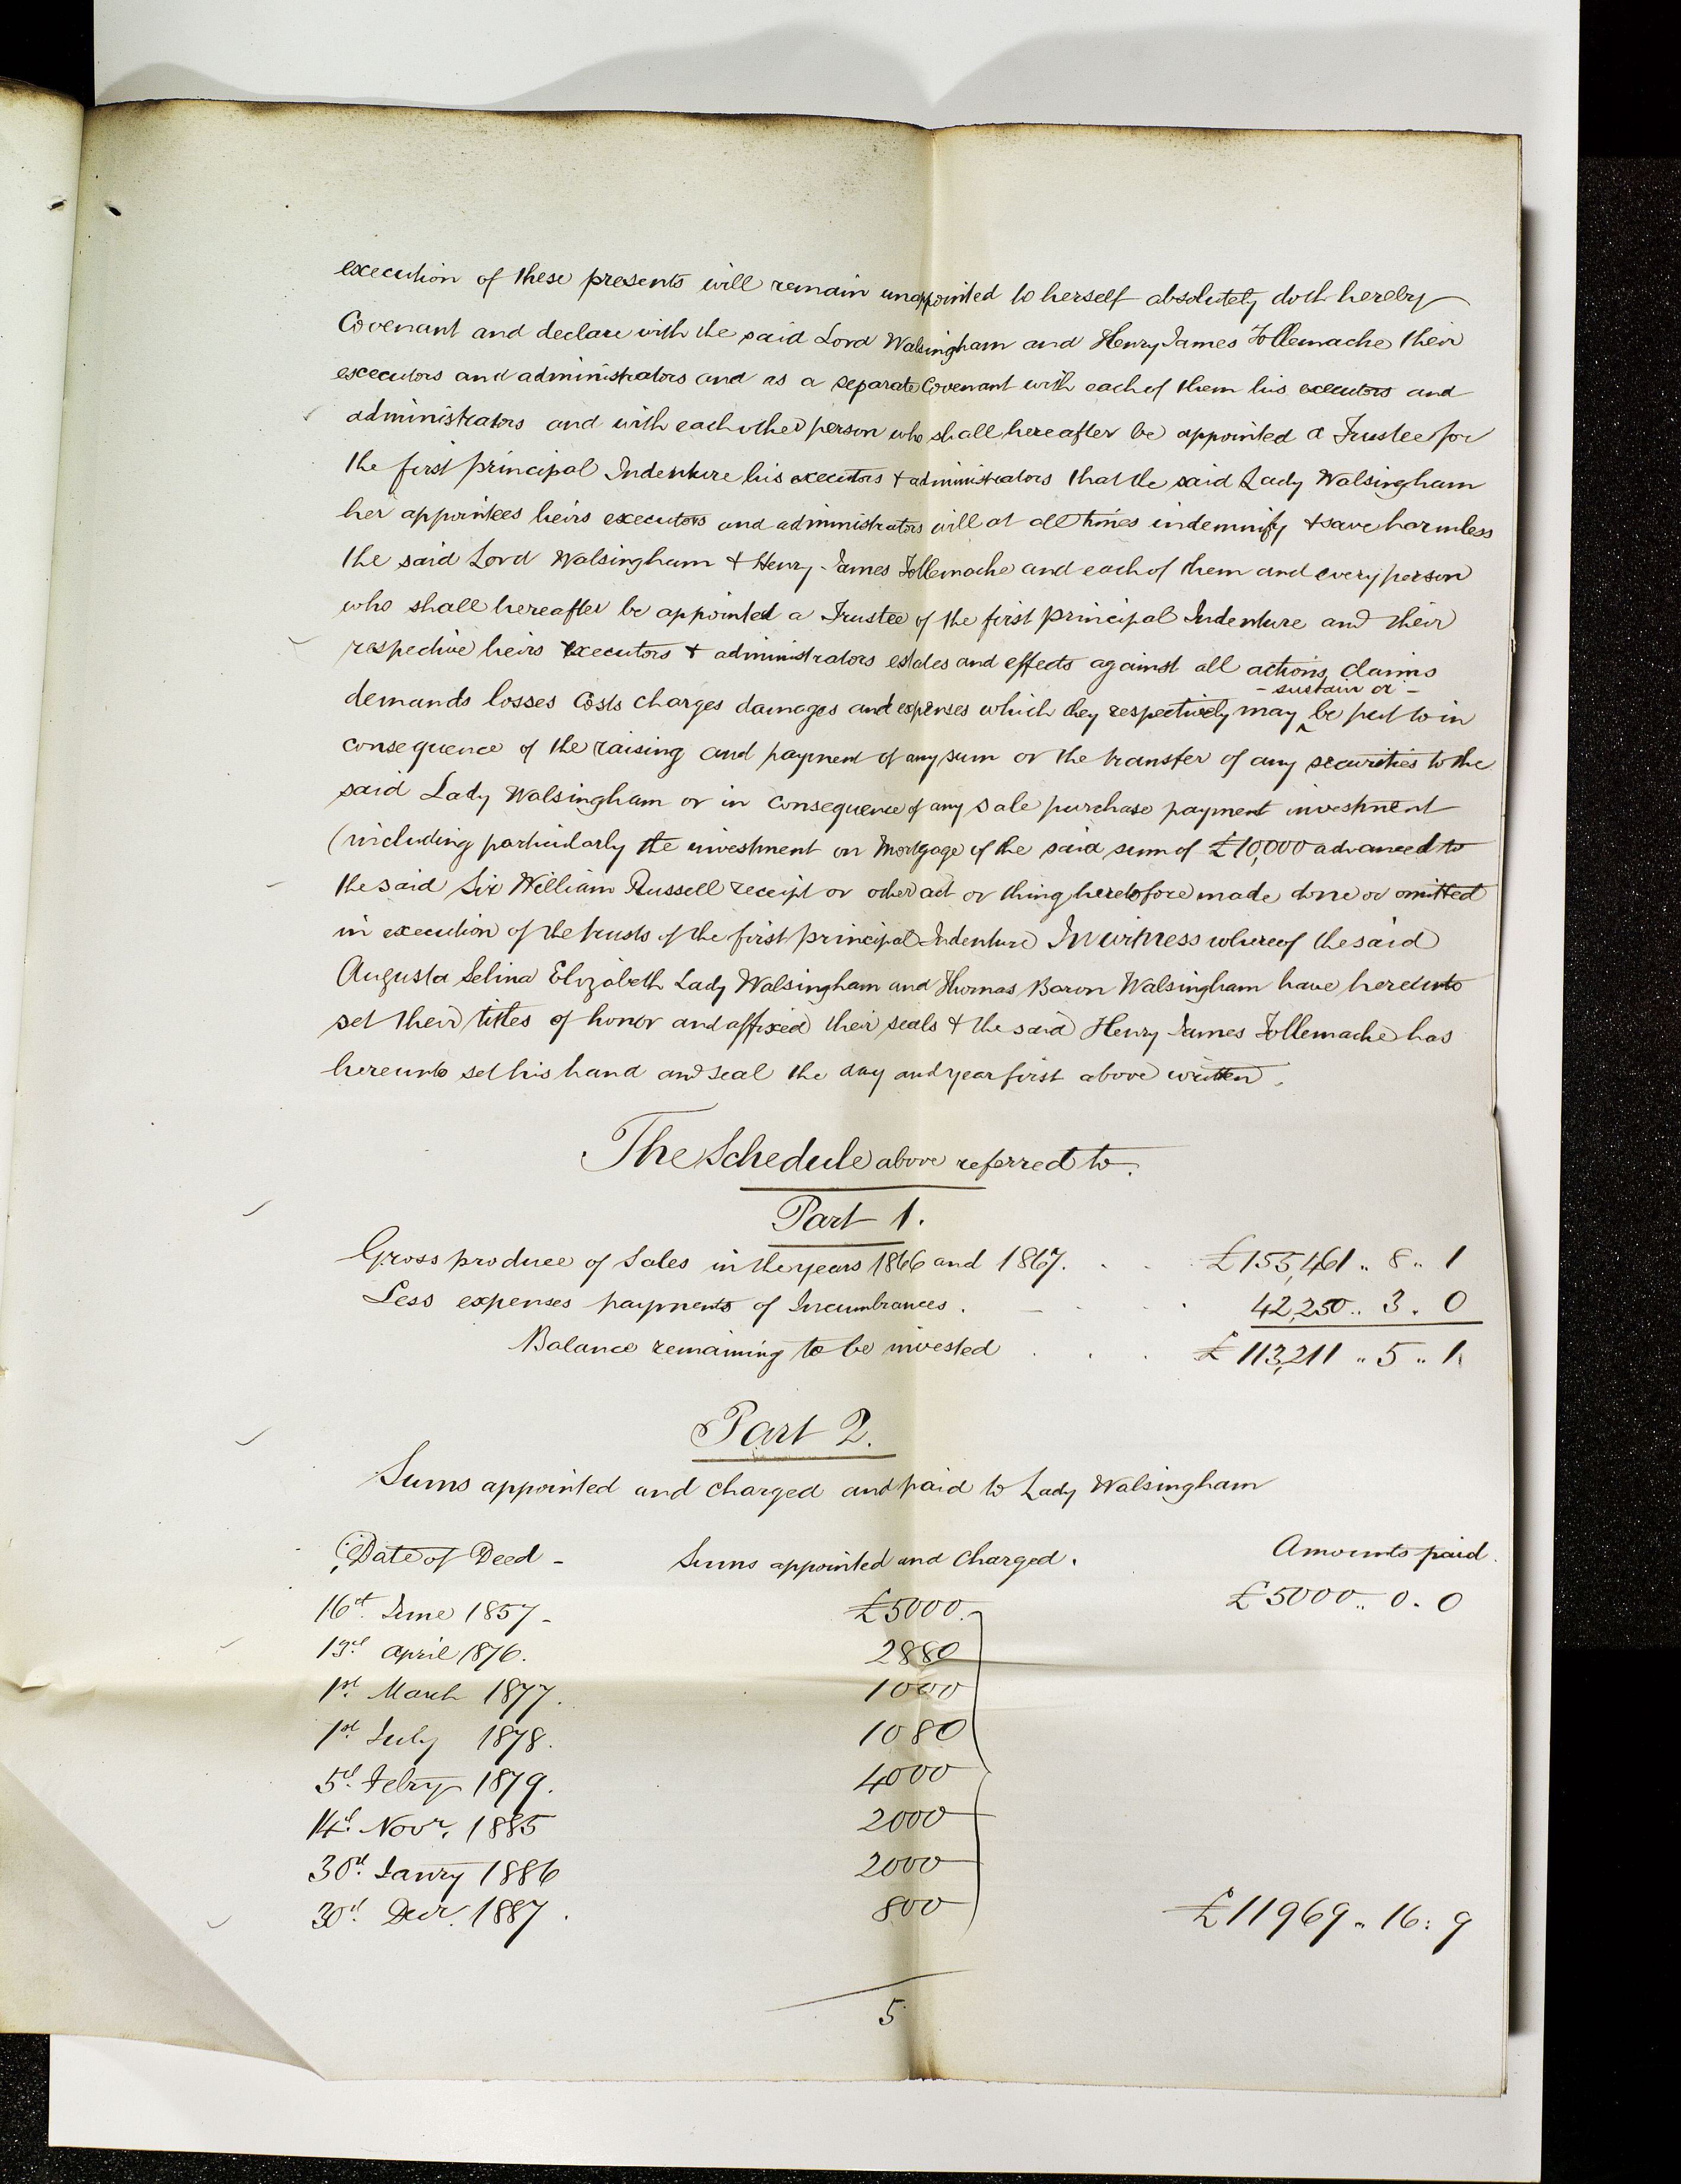 execution of these presents will remain unappointed to herself absolutely doth hereby
Covenant and declare with the said Lord Walsingham and Henry James Tollemache their
executors and administrators and as a separate Covenant with each of them his executors and
administrators and with each other person who shall hereafter be appointed a Trustee for
the first principal Indenture his executors & administrators that the said Lady Walsingham
her appointees heirs executors and administrators will at all times indemnify & save harmless
the said Lord Walsingham & Henry James Tollemache and each of them and every person
who shall hereafter be appointed a Trustee of the first principal Indenture and their
respective heirs executors & administrators estates and effects against all actions claims
- sustain or -
demands losses Costs charges damages and expenses which they respectively may ^ be put to in
consequence of the raising and payment of any sum or the transfer of any securities to the
said Lady Walsingham or in consequence of any sale purchase payment investment
(including particularly the investment on Mortgage of the said sum of £10,000 advanced to
the said Sir William Russell receipt or other act or thing heretofore made done or omitted
in execution of the trusts of the first principal Indenture In witness whereof the said
Augusta Selina Elizabeth Lady Walsingham and Thomas Baron Walsingham have hereunto
set their titles of honor and affixed their seals & the said Henry James Tollemache has
hereunto set his hand and seal the day and year first above written.
The Schedule above referred to.
Part 1.
Gross produce of Sales in the years 1866 and 1867. . . . £155,461 .. 8 .. 1
Less expenses payments of Incumbrances . - . . 42,250 .. 3 . 0
Balance remaining to be invested . . . £113,211 .. 5 .. 1
Part 2.
Sums appointed and charged and paid to Lady Walsingham
Date of Deed - Sums appointed and charged. Amounts paid.
16th June 1857 - £5000. £5000 .. 0 . 0
13th April 1876. 2880
1st March 1877. 1000
1st July 1878. 1080
5th Febry 1879. 4000
14th Novr. 1885 2000
30th Janry 1886 2000
30th Decr. 1887. 800 £11969 .. 16 : 9
5